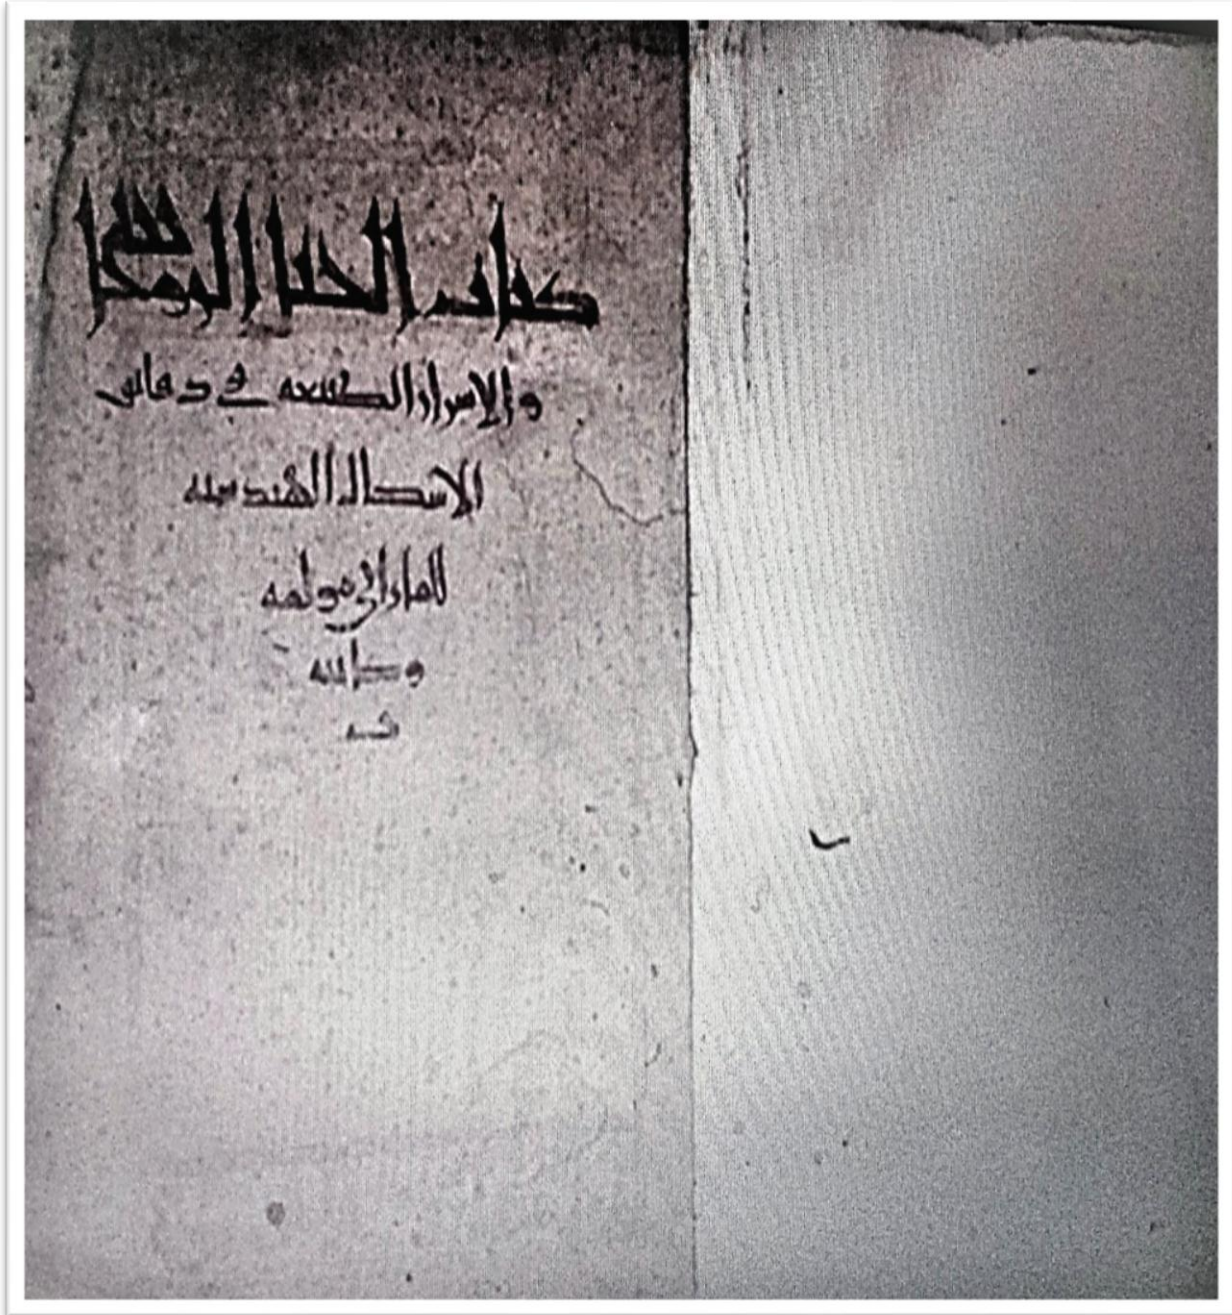 الحيل الروحانيه
والاسرار الطبيعيه في دقايق
الاشكال الهندسيه
للفارابي مولفه
وكاتبه